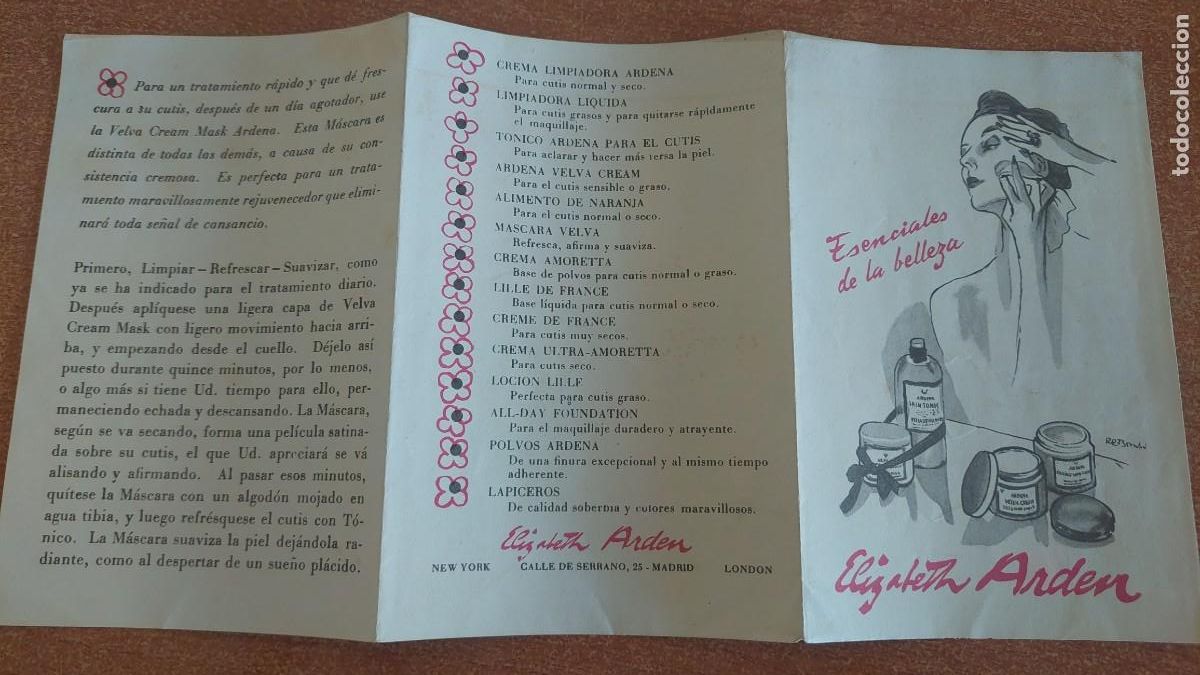 Para un tratamiento rápido y que dé fres-
cura a su cutis, después de un día agotador, use
la Velva Cream Mask Ardena. Esta Máscara es
distinta de todas las demás, a causa de su con-
sistencia cremosa. Es perfecta para un trata-
miento maravillosamente rejuvenecedor que elimi-
nará toda señal de cansancio.
Primero, Limpiar - Refrescar - Suavizar, como
ya se ha indicado para el tratamiento diario.
Después aplíquese una ligera capa de Velva
Cream Mask con ligero movimiento hacia arri-
ba, y empezando desde el cuello. Déjelo así
puesto durante quince minutos, por lo menos,
o algo más si tiene Ud. tiempo para ello, per-
maneciendo echada y descansando. La Máscara,
según se va secando, forma una película satina-
da sobre su cutis, el que Ud. apreciará se vá
alisando y afirmando. Al pasar esos minutos,
quítese la Máscara con un algodón mojado en
agua tibia, y luego refrésquese el cutis con Tó-
nico. La Máscara suaviza la piel dejándola ra-
diante, como al despertar de un sueño plácido.
CREMA LIMPIADORA ARDENA
Para cutis normal y seco.
LIMPIADORA LIQUIDA
Para cutis grasos y para quitarse rápidamente
el maquillaje.
TONICO ARDENA PARA EL CUTIS
Para aclarar y hacer más tersa la piel.
ARDENA VELVA CREAM
Para el cutis sensible o graso.
ALIMENTO DE NARANJA
Para el cutis normal o seco.
MASCARA VELVA
Refresca, afirma y suaviza.
CREMA AMORETTA
Base de polvos para cutis normal o graso.
LILLE DE FRANCE
Base líquida para cutis normal o seco.
CREME DE FRANCE
Para cutis muy secos.
CREMA ULTRA-AMORETTA
Para cutis seco.
LOCION LILLE
Perfecta para cutis graso.
ALL-DAY FOUNDATION
Para el maquillaje duradero y atrayente.
POLVOS ARDENA
De una finura excepcional y al mismo tiempo
adherente.
LAPICEROS
De calidad soberbia y colores maravillosos.
Elizabeth Arden
NEW YORK CALLE DE SERRANO, 25 - MADRID LONDON
Esenciales
de la belleza
ARDENA
SKIN TONIC
ARDENA
VELVA CREAM
Elizabeth Arden
todocoleccion